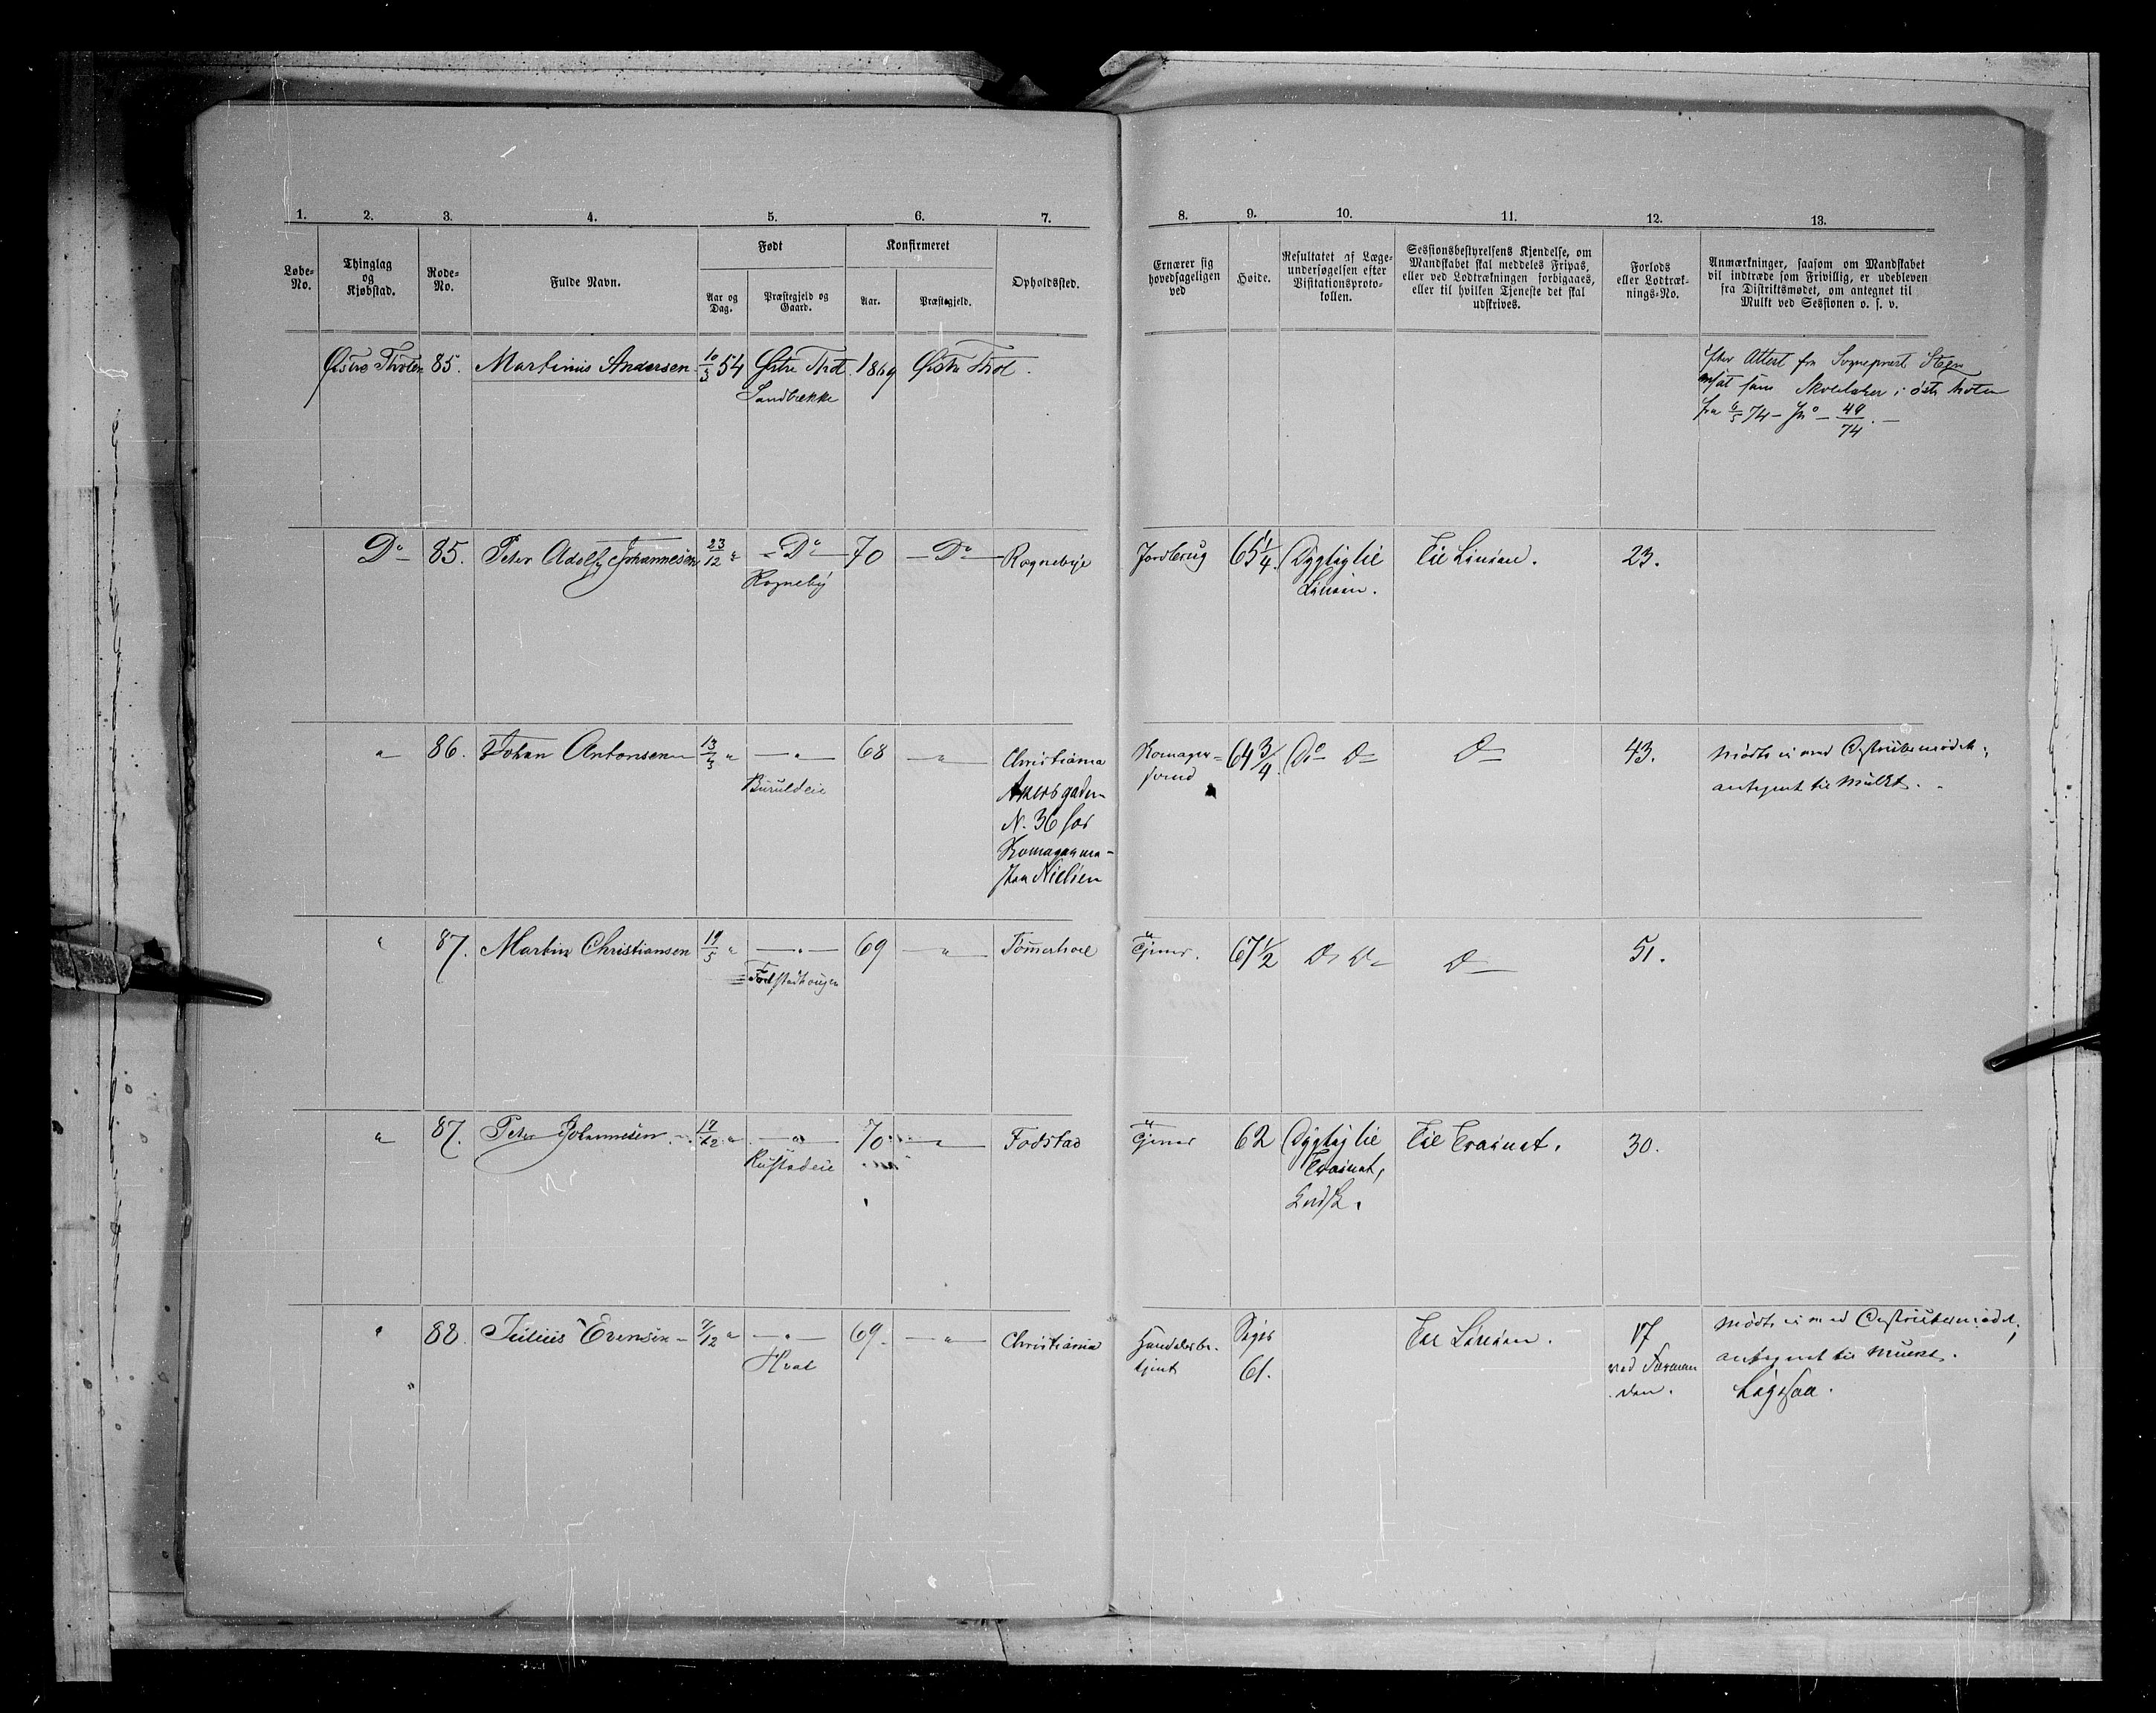 1. 2. 3. 4. 5. 6. 7. 8. 9. 10. 11. 12. 13.
Løbe-No.
Thinglag og Kjøbstad.
Rode-No.
Fulde Navn.
Født
Aar og Dag.
Præstegjeld og Gaard.
Konfirmeret
Aar.
Præstegjeld.
Opholdssted.
Ernærer sig hovedsageligen ved
Høide.
Resultatet af Læge-undersøgelsen efter Visitationsproto-kollen.
Sessionsbestyrelsens Kjendelse, om Mandskabet skal meddeles Fripas, eller ved Lodtrækningen forbigaaes, eller til hvilken Tjeneste det skal udskrives.
Forlods eller Lodtræk-nings-No.
Anmærkninger, saasom om Mandskabet vil indtræde som Frivillig, er udebleven fra Distriktsmødet, om antegnet til Mulkt ved Sessionen o. s. v.
Østre Thoten 85. Martinius Andersen 10/3 54 Østre Thot. 1869 Østre Thot.
Sandbække
Efter Attest fra Sognepræst Steen
ansat som Skolelærer i østre Thoten
fra 6/5 74 - Jno - 49/74. -
Do 85. Peter Adolf Johannesen 23/12 " - Do - 70 - Do - Rognebye Jordbrug 65 1/4. Dygtig til Linien. 23.
Rogneby
Linien.
" 86. Johan Antonsen 13/3 " - " - 68 - " - Christiania
Buruldeie
Akersgaden
N. 36 hos
Komagerma-
Nielsen
Komager-
svend
64 3/4. Do Do Do 43.
Mødte ei ved Distriktsmødet,
antegnet til Mulkt.
" 87. Martin Christiansen 19/5 " - " - 69 - " - Tømmerhoel Tjener. 67 1/2 Do Do Do 51.
Fodstadhougen
" 87. Peter Johannesen 17/12 " - " - 70 - " - Fodstad Tjener 62 Dygtig til Til Trainet. 30.
Rustadeie
Trainet,
" 88. Julius Evensen - 7/12 " - " - 69. - " - Christiania
Hval
Handelsbe-
tjent
Siges
61.
Til Linien.
17
ved Forman
den.
Mødte ei ved Distriktsmødet,
antegnet til Mulkt.